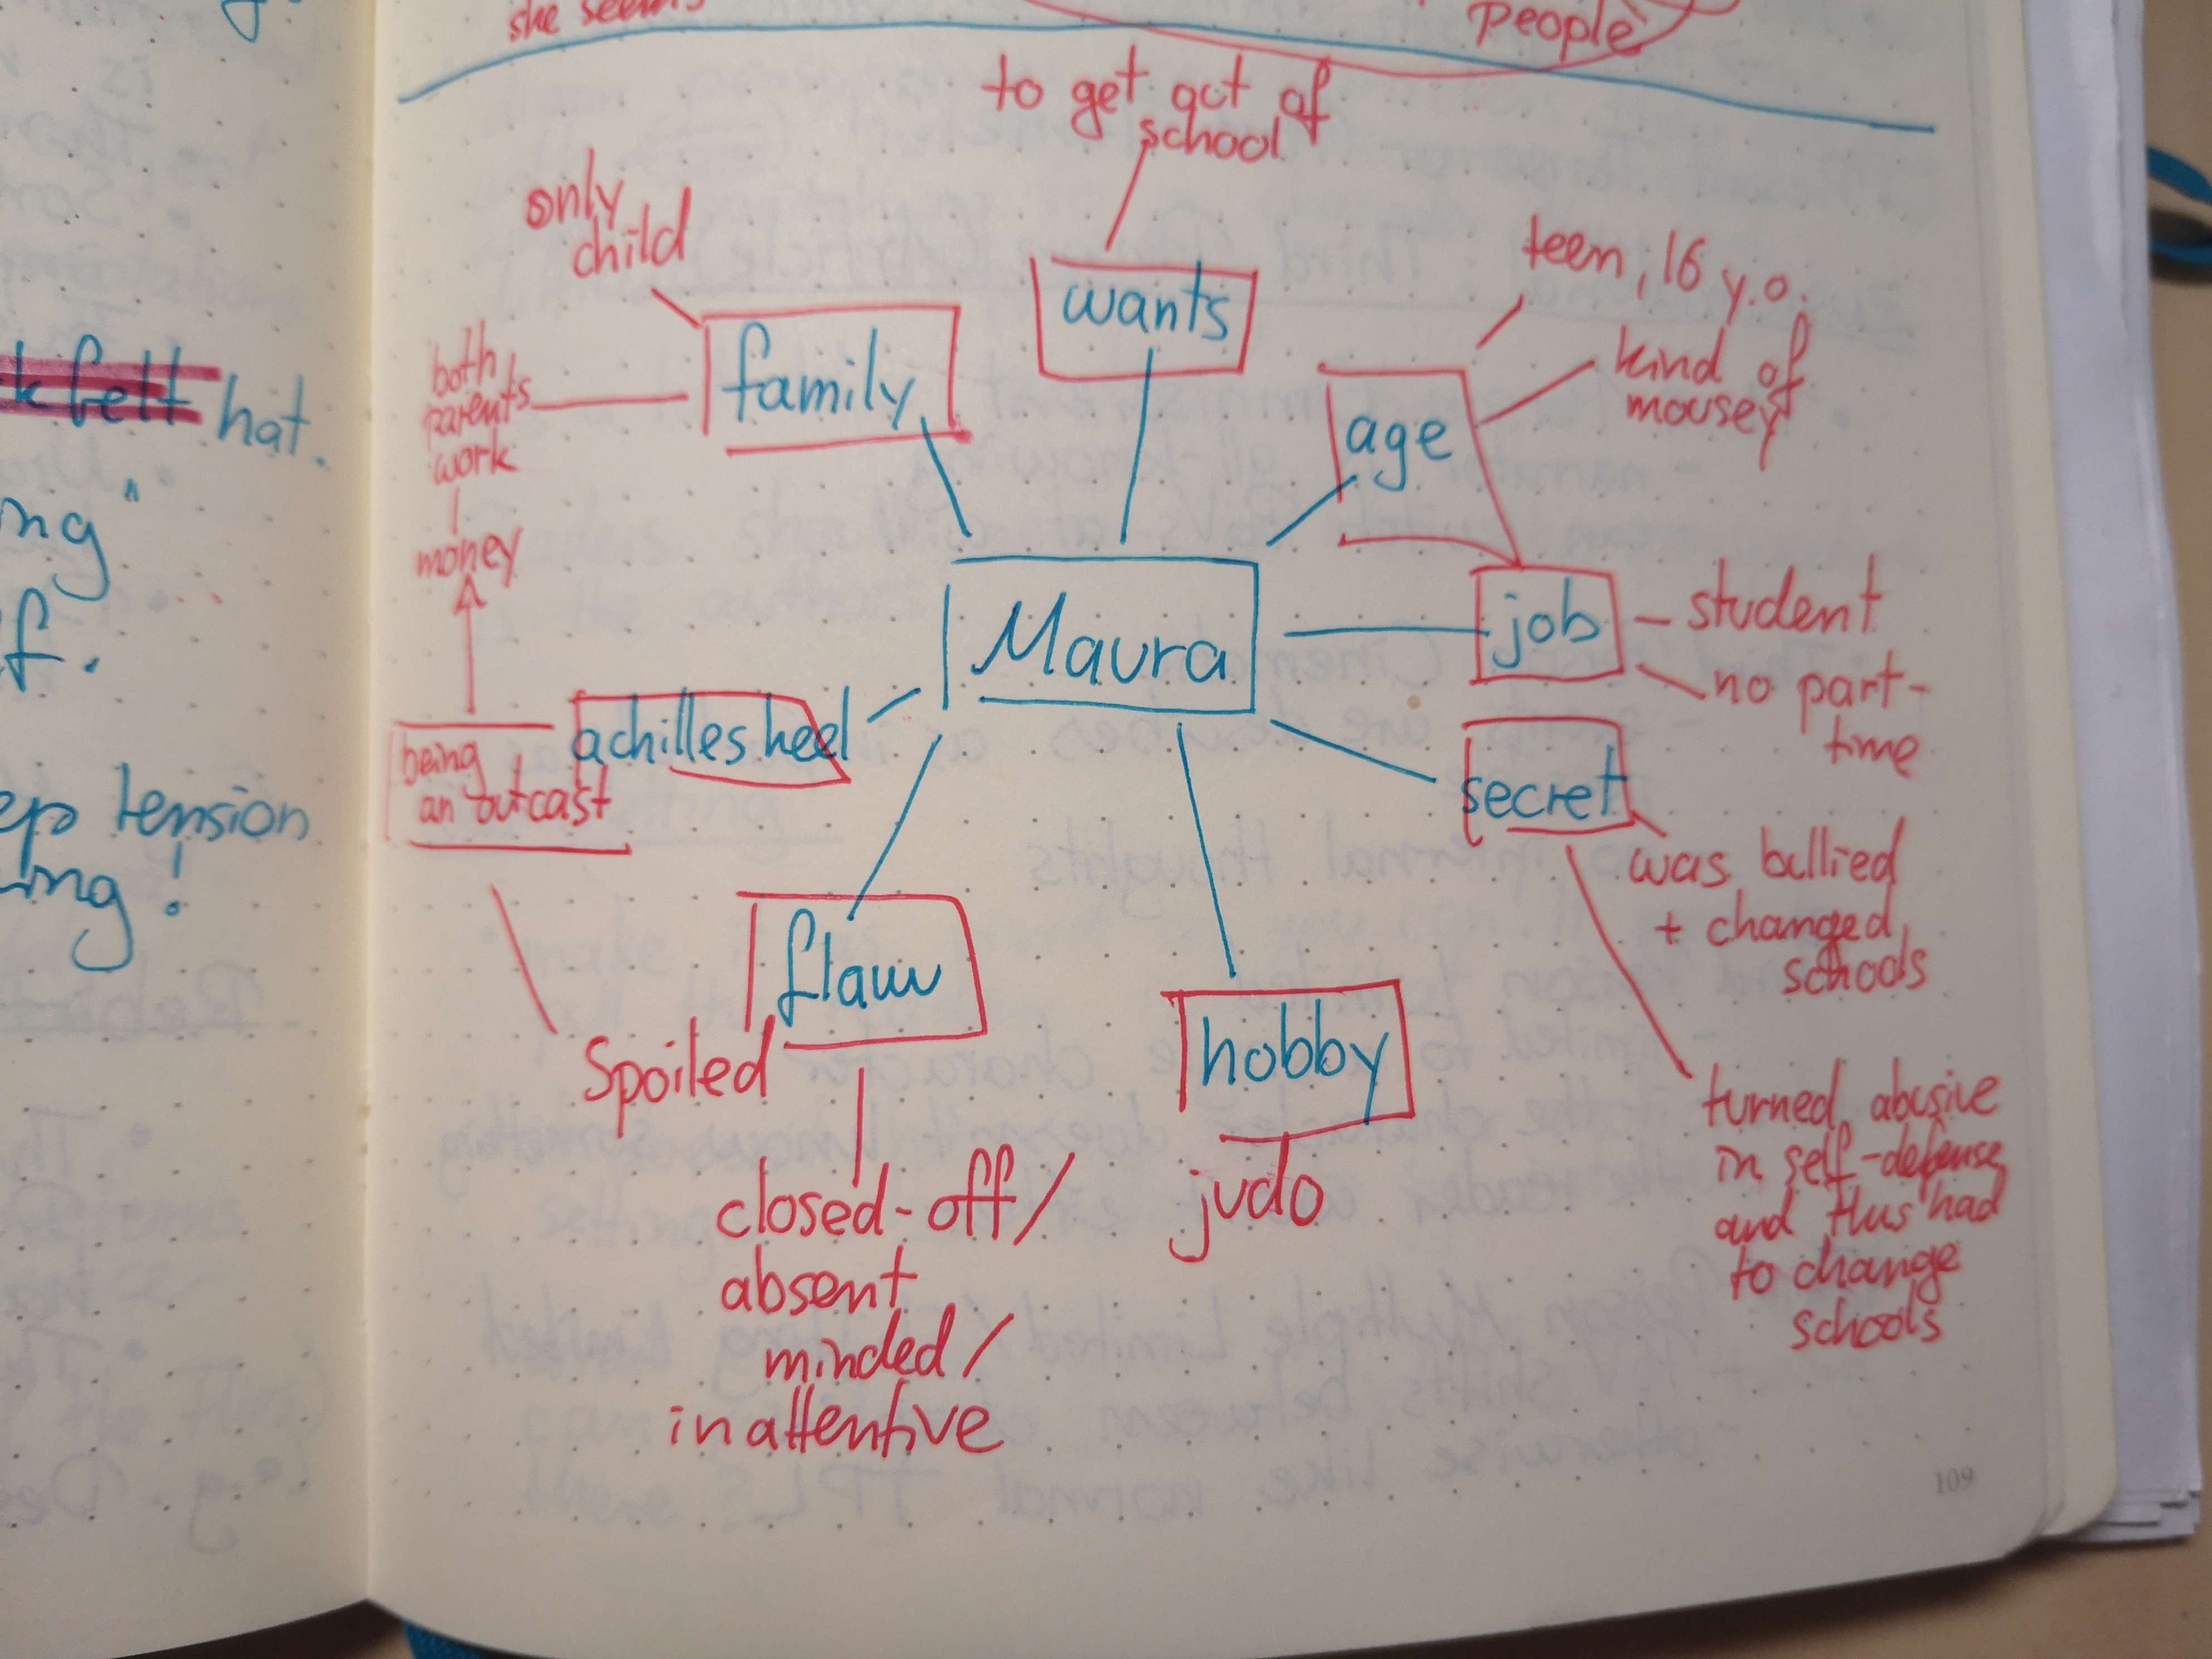 she seems
people
to get out of
school
only
child
wants
teen, 16 y.o.
family
kind of
mousey
age
both
parents
work
money
Maura
job
student
no part-
time
achilles heel
being
an outcast
secret
was bullied
+ changed
schools
flaw
Spoiled
hobby
turned abusive
in self-defense
and thus had
to change
schools
closed-off/
absent
minded/
inattentive
judo
109
felt hat.
ng"
f.
tension
ing!